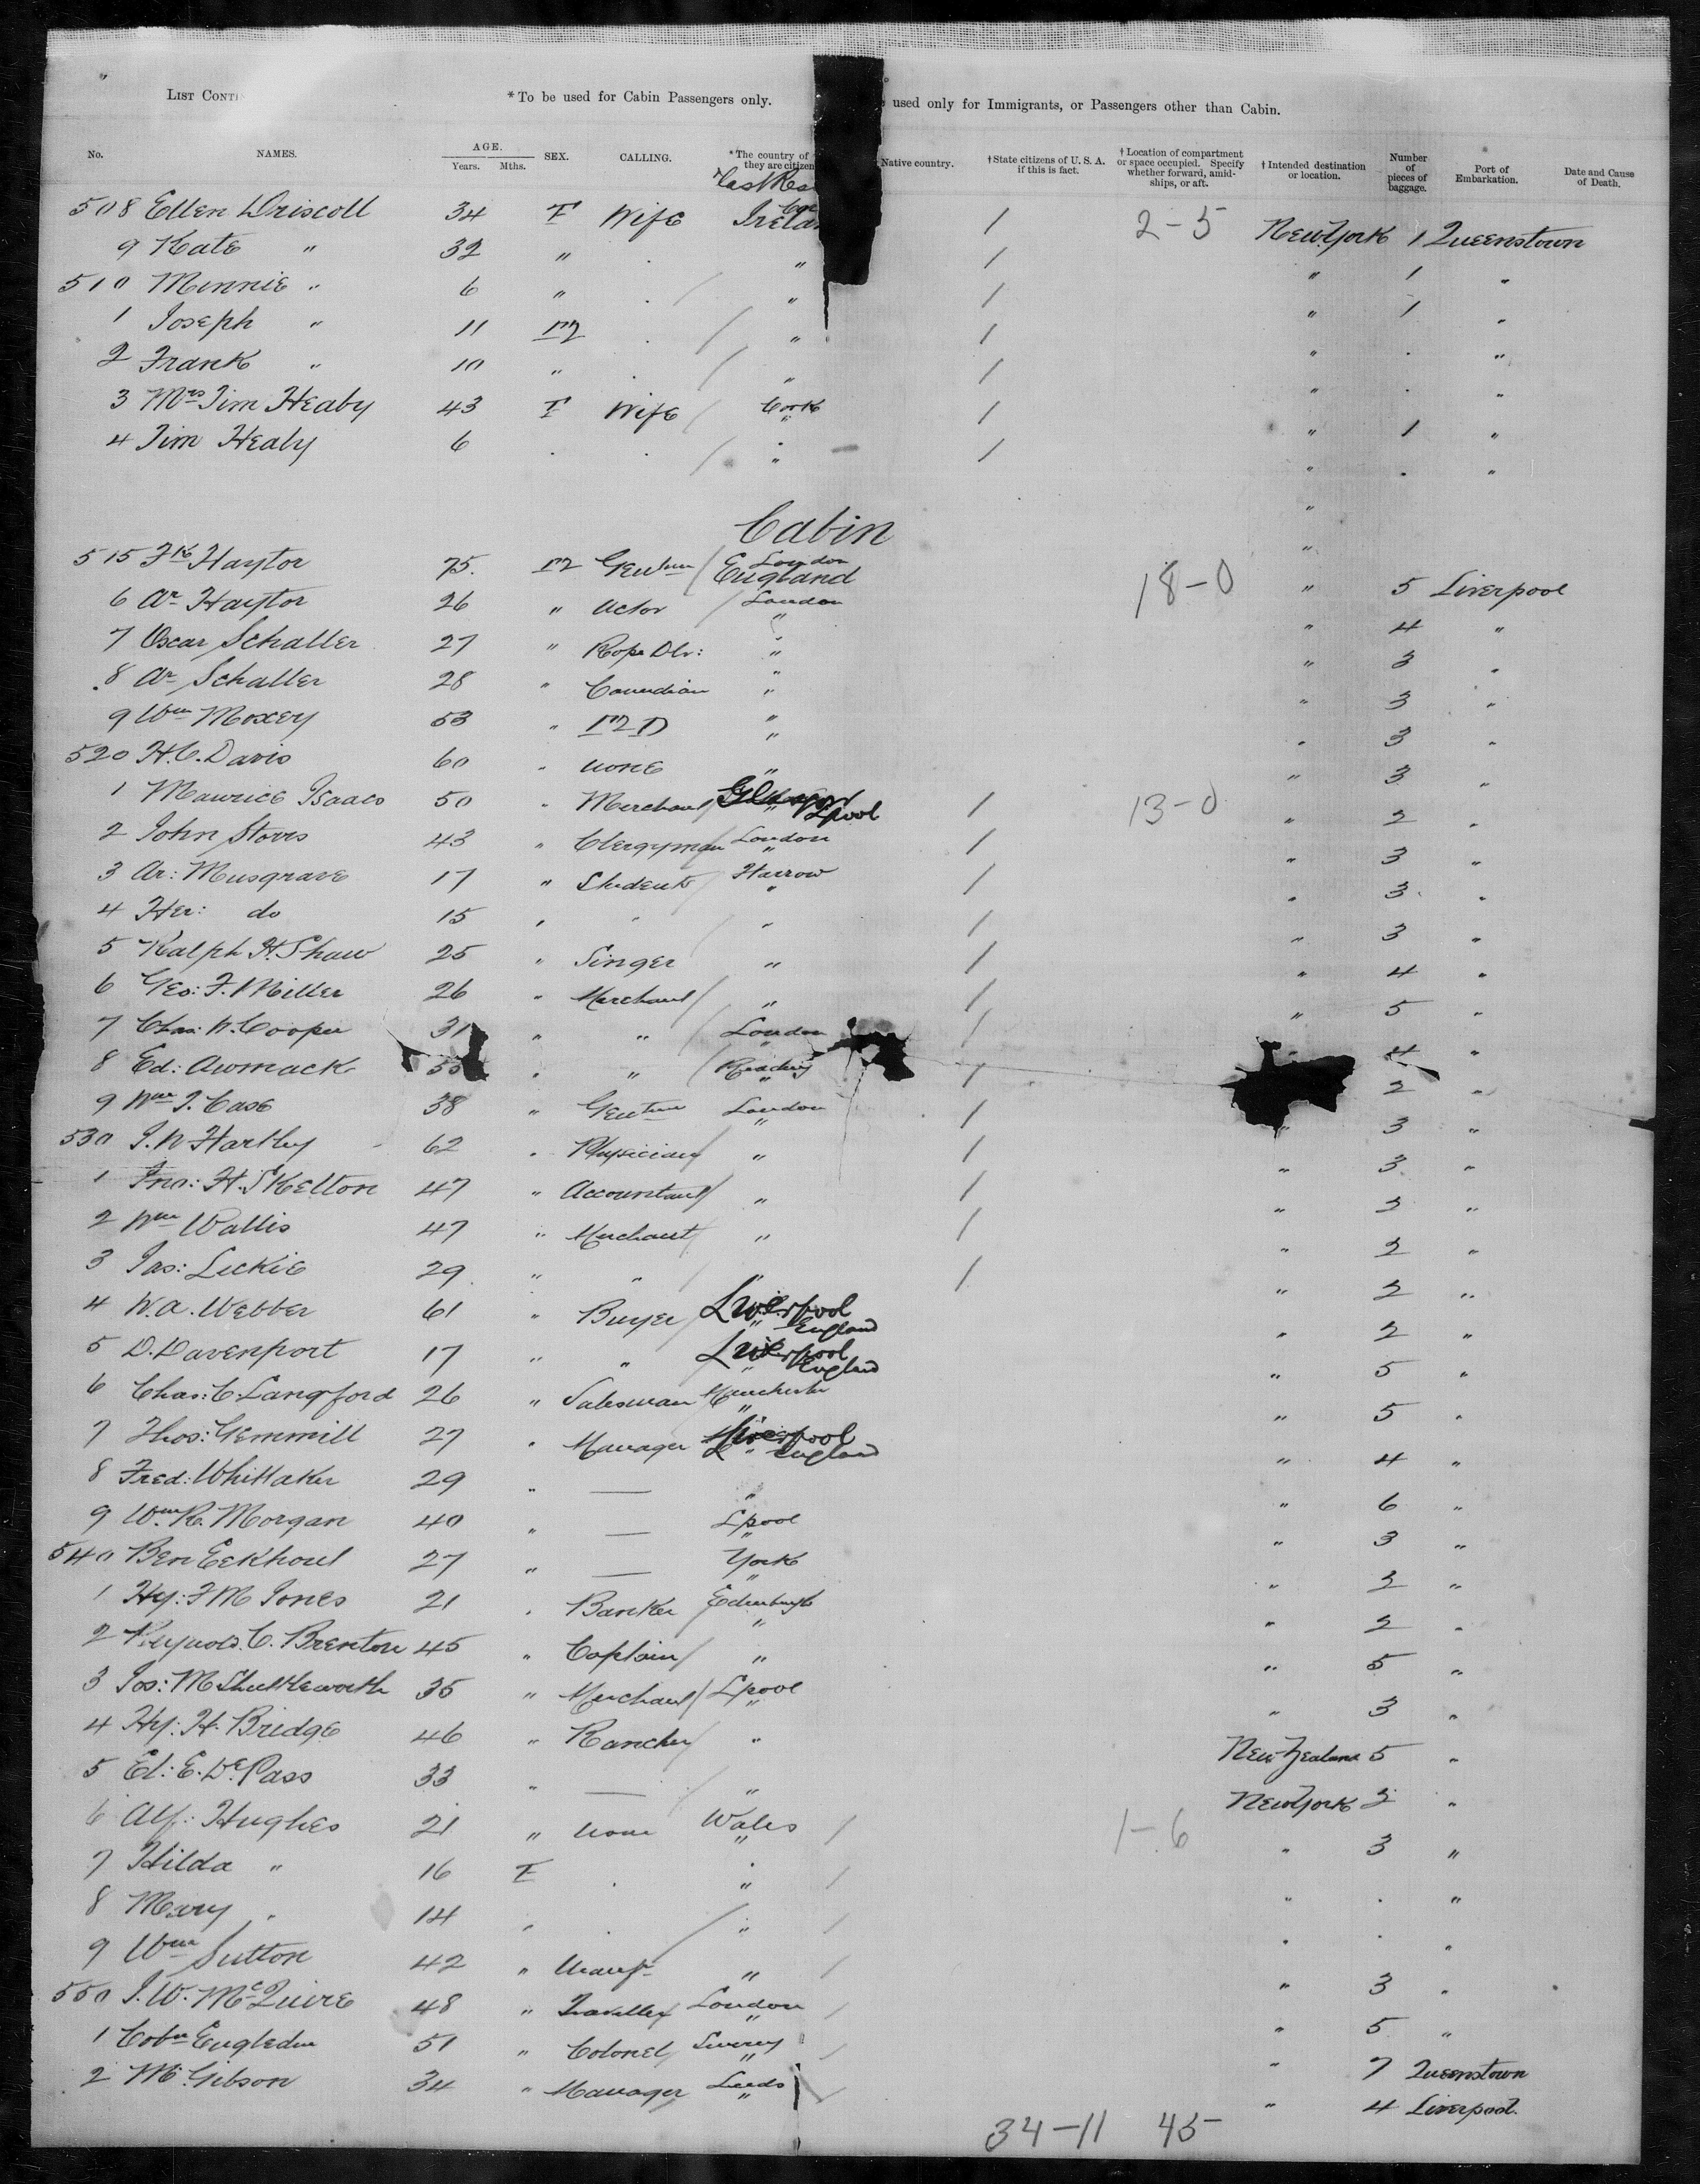 List Conti
*To be used for Cabin Passengers only.
used only for Immigrants, or Passengers other than Cabin.
No. NAMES. AGE. Years. Mths. SEX. CALLING. *The country of they are citizen Native country. †State citizens of U. S. A. if this is fact. †Location of compartment or space occupied. Specify whether forward, amid-ships, or aft. †Intended destination or location. Number of pieces of baggage. Port of Embarkation. Date and Cause of Death.
508 Ellen Driscoll 34 F Wife Irela / 2-5 New York 1 Queenstown
9 Kate " 32 " " / " 1 "
510 Minnie " 6 " / " / " 1 "
1 Joseph " 11 M / " / " . "
2 Frank " 10 " / " / " . "
3 Mrs Jim Healy 43 F Wife / Cork / " 1 "
4 Jim Healy 6 . . / " / " . "
Cabin
515 Fk Haytor 75. M Gentm / London England 18-0 " 5 Liverpool
6 Ar Haytor 26 " Actor / London " 4 "
7 Oscar Schaller 27 " Rope Dlr: " " 3 "
8 Ar Schaller 28 " " " 3 "
9 Wm Moxey 53 " M D " " 3 "
520 H.C. Davis 60 " none " " 3 "
1 Maurice Isaacs 50 " Merchant / Lpool / 13-0 " 2 "
2 John Storrs 43 " Clergyman London / " 3 "
3 Ar: Musgrave 17 " Students / Harrow / " 3 "
4 Her: do 15 " " / " / " 3 "
5 Ralph H. Shaw 25 " Singer " / " 4 "
6 Geo: F. Miller 26 " Merchant / " / " 5 "
7 Chas: N. Cooper 31 " " / London / " 4 "
8 Ed: Awmack 55 " " / Reading / 2 "
9 Wm J. Case 38 " Gentm London / " 3 "
530 J. N Hartley 62 " Physician / " / " 3 "
1 Jno: H. Skelton 47 " Accountant / " / " 3 "
2 Wm Wallis 47 " Merchant / " / " 2 "
3 Jas: Leckie 29 " " / " / " 2 "
4 W.A. Webber 61 " Buyer / Liverpool England " 2 "
5 D. Davenport 17 " " Liverpool England " 5 "
6 Chas: C. Langford 26 " Salesman Manchester " 5 "
7 Thos: Gemmill 27 " Manager Liverpool England " 4 "
8 Fred: Whittaker 29 " — " " 6 "
9 Wm R. Morgan 40 " — Lpool " 3 "
540 Ben Eckhout 27 " — York " 3 "
1 Hy: F M Jones 21 " Banker Edinburgh " 2 "
2 Reynold. C. Brenton 45 " Captain / " " 5 "
3 Jos: M Shuttleworth 35 " Merchant / Lpool " 3 "
4 Hy: H. Bridge 46 " Rancher / " New Zealand 5 "
5 Ed: E. De Pass 33 " — / " New York 3 "
6 Alf: Hughes 21 " none Wales / 1-6 " 3 "
7 Hilda " 16 F . " / " . "
8 Mary " 14 " . / " / " . "
9 Wm Sutton 42 " Manfr " / " 3 "
550 J. W. McQuire 48 " Traveller London / " 5 "
1 Engledue 51 " Colonel Surrey / " 7 Queenstown
2 M. Gibson 34 " Manager Leeds / " 4 Liverpool.
34-11 45-